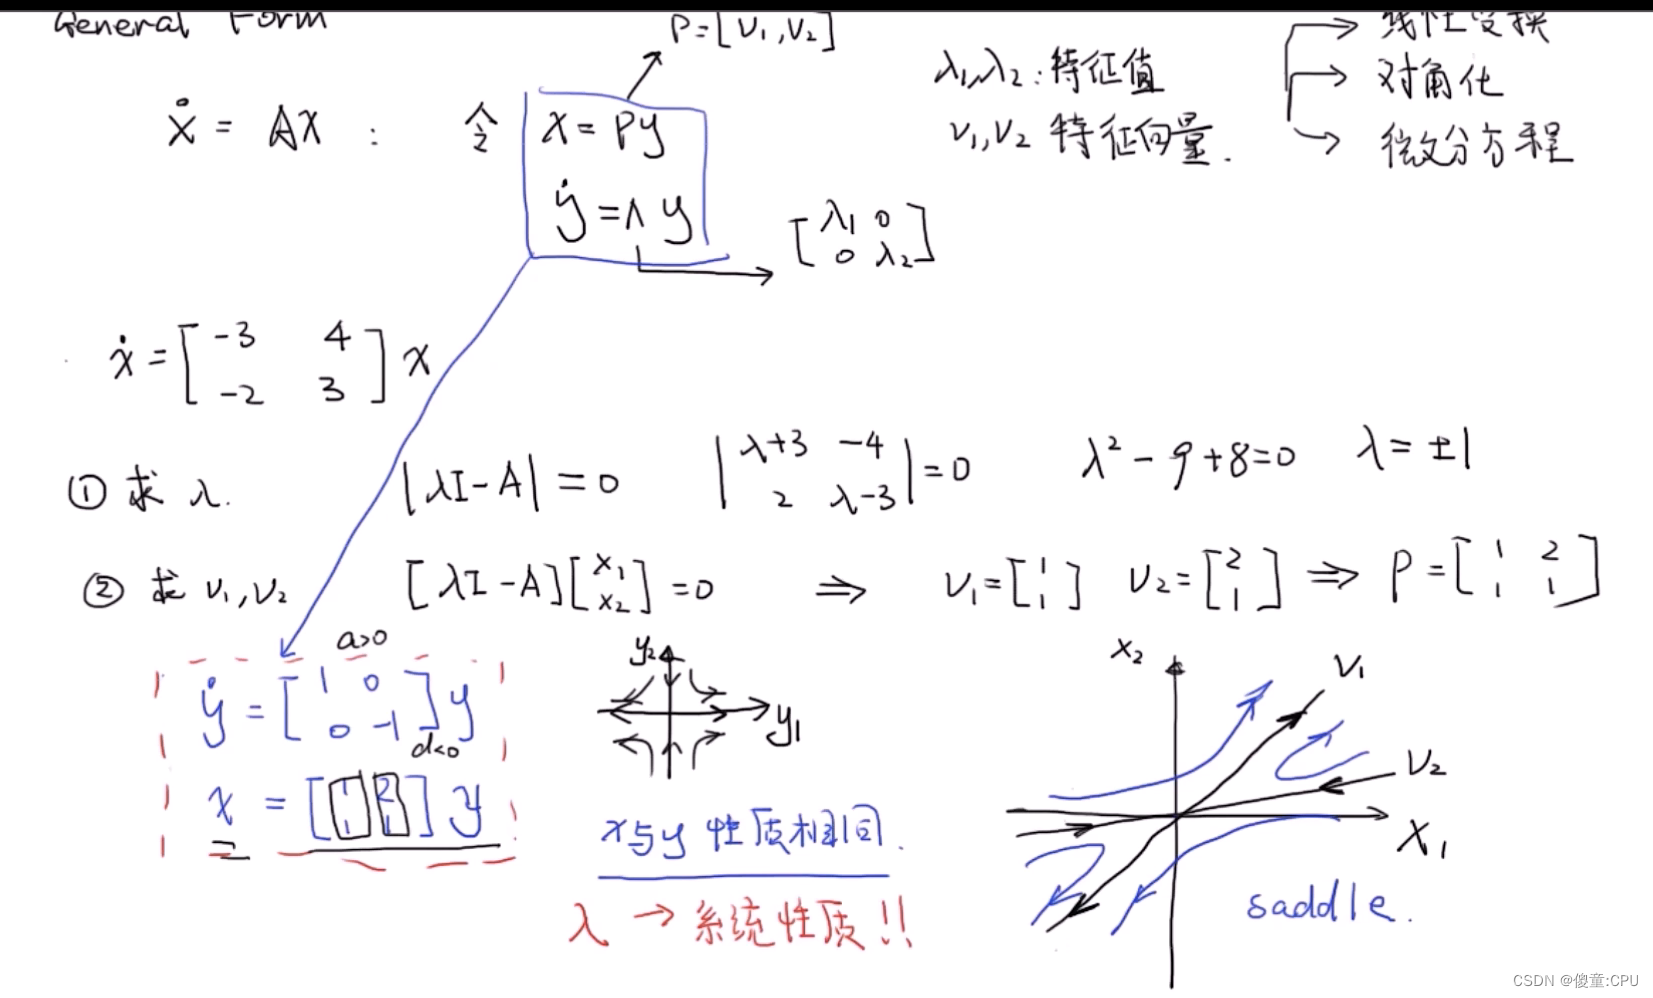 General Form
P=[v₁,v₂]
λ₁,λ₂:特征值
v₁,v₂ 特征向量.
线性变换
对角化
微分方程
ẋ = AX :
令
x = Py
ẏ = Λ y
[λ₁ 0
0 λ₂]
ẋ = [-3 4
-2 3] x
① 求 λ.
|λI-A| = 0
|λ+3 -4
2 λ-3| = 0
λ² - 9 + 8 = 0
λ = ±1
② 求 v₁,v₂
[λI-A][x₁
x₂] = 0
⇒
v₁ = [1
1]
v₂ = [2
1]
⇒ P = [1 2
1 1]
a>0
ẏ = [1 0
0 -1] y
d<0
x = [1 2
1 1] y
y₂
y₁
x与y 性质相同.
λ → 系统性质!!
x₂
v₁
v₂
X₁
saddle.
CSDN @傻童:CPU